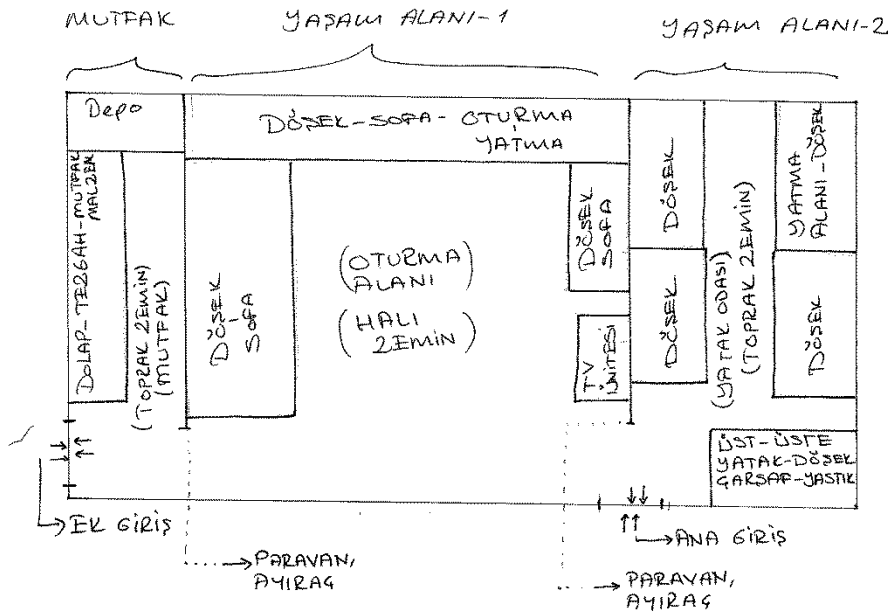 MUTFAK
YAŞAM ALANI-1
YAŞAM ALANI-2
Depo
DÖŞEK-SOFA-OTURMA
YATMA
DOLAP-TEZGAH-MUTFAK
MALZEM
(TOPRAK ZEMİN)
(MUTFAK)
DÖŞEK
SOFA
(OTURMA
ALANI)
(HALI
ZEMİN)
DÖŞEK
SOFA
TV
ÜNİTESİ
DÖŞEK
DÖŞEK
(YATAK ODASI)
(TOPRAK ZEMİN)
YATMA
ALANI-DÖŞEK
DÖŞEK
ÜST-ÜSTE
YATAK-DÖŞEK
ÇARŞAF-YASTIK
EK GİRİŞ
PARAVAN,
AYIRAÇ
ANA GİRİŞ
PARAVAN,
AYIRAÇ